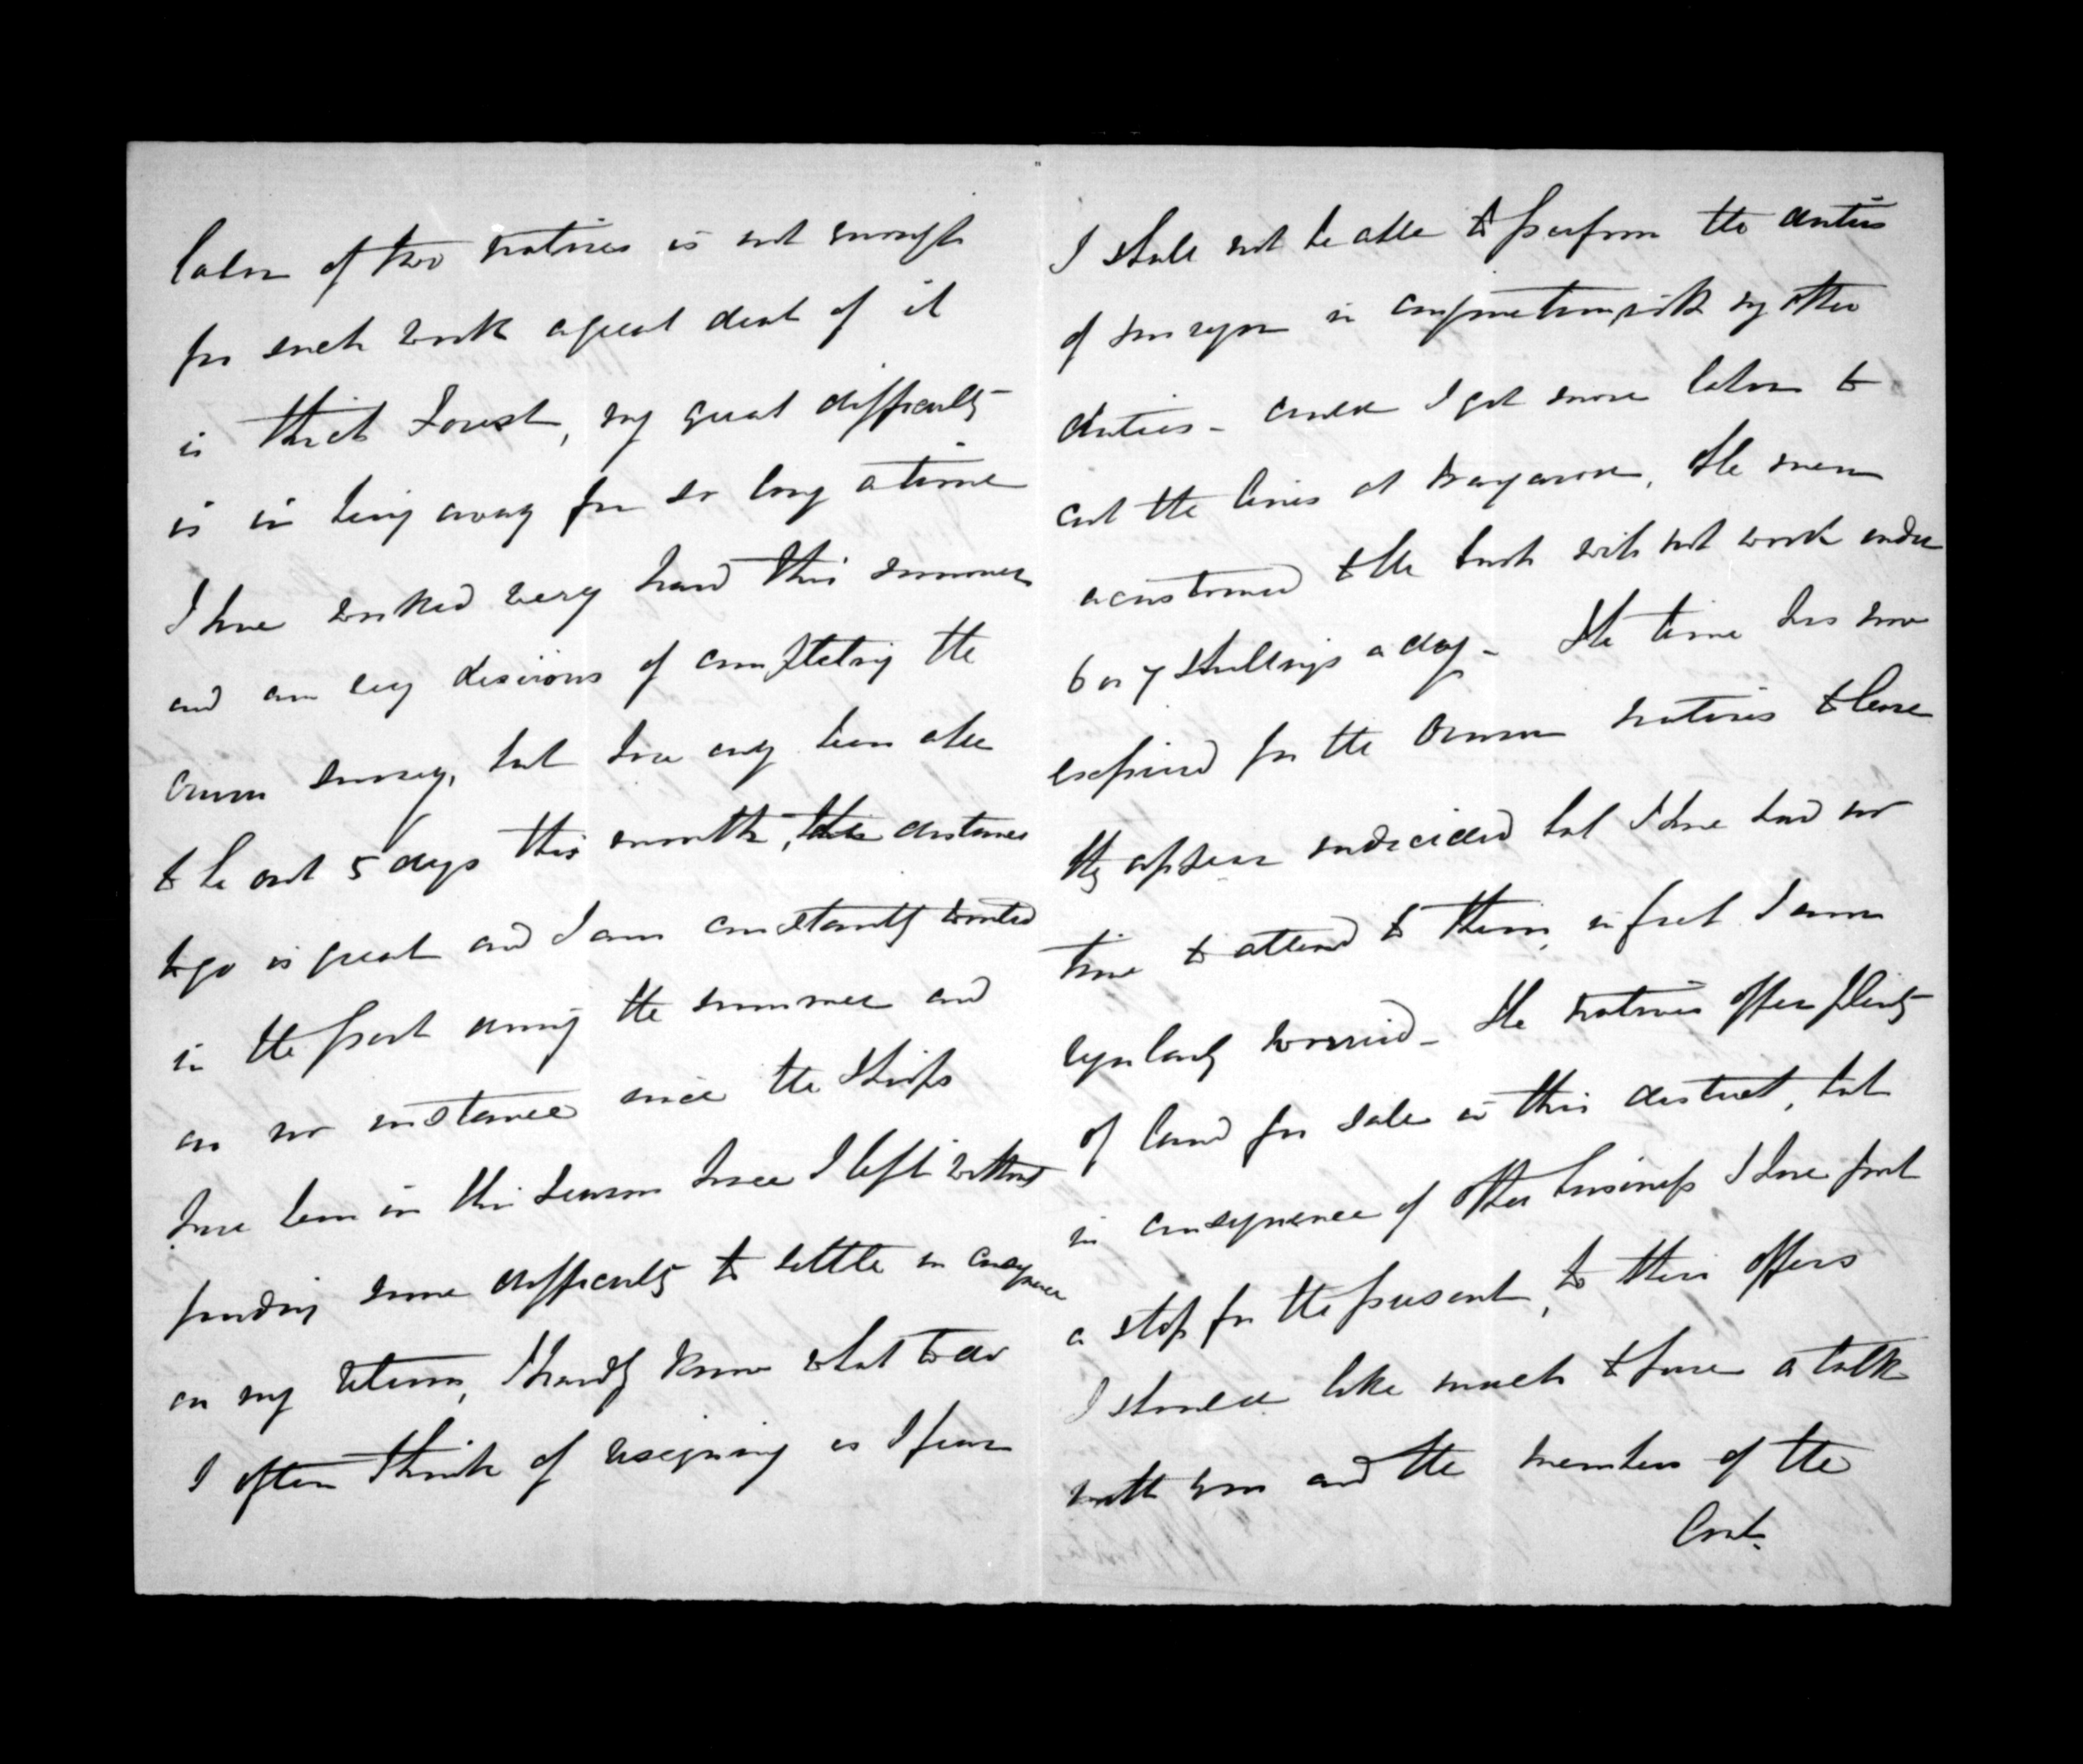 labor of two natives is not enough
for such work a great deal of it
is thick Forest, my great difficulty
is in being away for so long a time
I have worked very hard this summer
and am very desirous of completing the
survey, but have only been able
to be out 5 days this month, the distance
to go is great and I am constantly wanted
in the port during the summer and
on no instance since the Ships
have been in this season have I left without
finding some difficulty to settle in consequence
on my return, I hardly know what to do
I often think of resigning as I fear
I shall not be able to perform the duties
of surveyor in conjunction with my other
duties - could I get more labor to
cut the lines at the men
acustomed to the bush will not work under
6 or 7 shillings a day - The time has now
expired for the natives to leave
they appear undecided but I have had no
time to attend to them, in fact I am
regularly worried - The natives offer plenty
of land for sale in this district, but
in consequence of other business I have put
a stop for the present, to their offers
I should like much to have a talk
with you and the members of the
Cont.